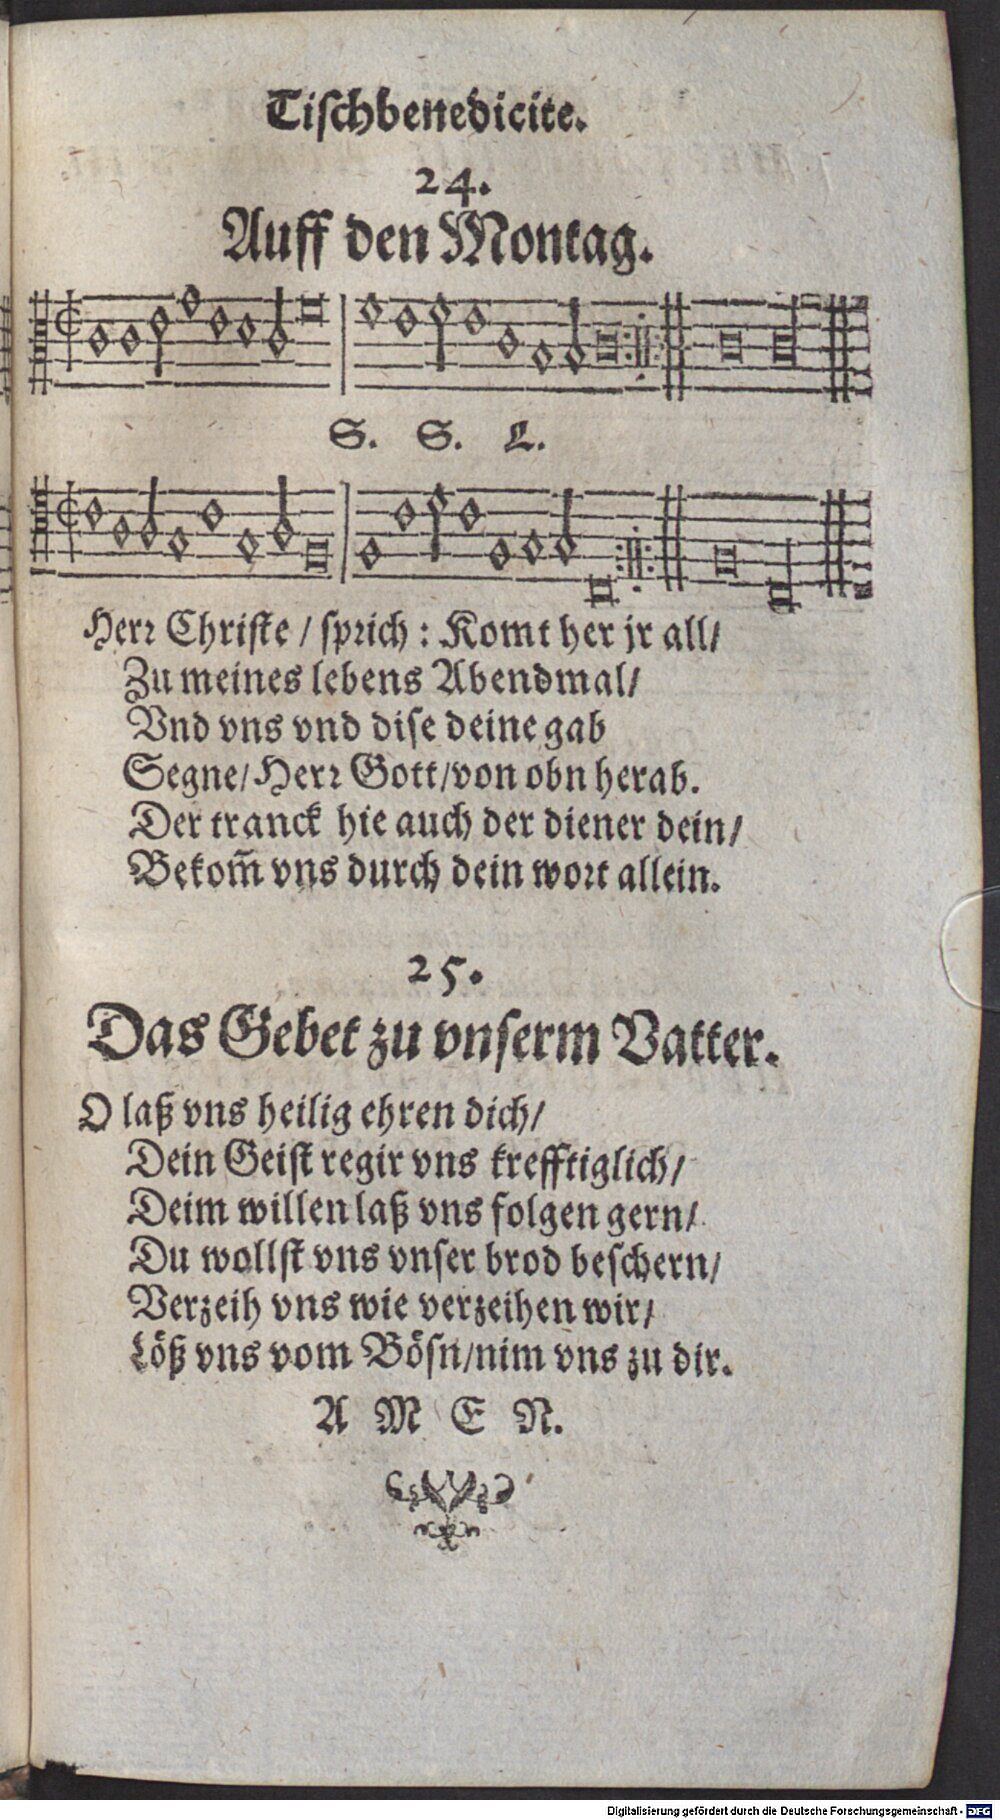 Tiſchbenedicite.
24.
Auff den Montag.
S. S. L.
Herr Chriſte / ſprich : Komt her jr all/
Zu meines lebens Abendmal/
Vnd vns vnd diſe deine gab
Segne/Herr Gott/von obn herab.
Der tranck hie auch der diener dein/
Bekom̃ vns durch dein wort allein.
25.
Das Gebet zu vnſerm Vatter.
O laß vns heilig ehren dich/
Dein Geiſt regir vns krefftiglich/
Deim willen laß vns folgen gern/
Du wollſt vns vnſer brod beſchern/
Verzeih vns wie verzeihen wir/
Löß vns vom Böſn/nim vns zu dir.
A M E N.
Digitalisierung gefördert durch die Deutsche Forschungsgemeinschaft - DFG